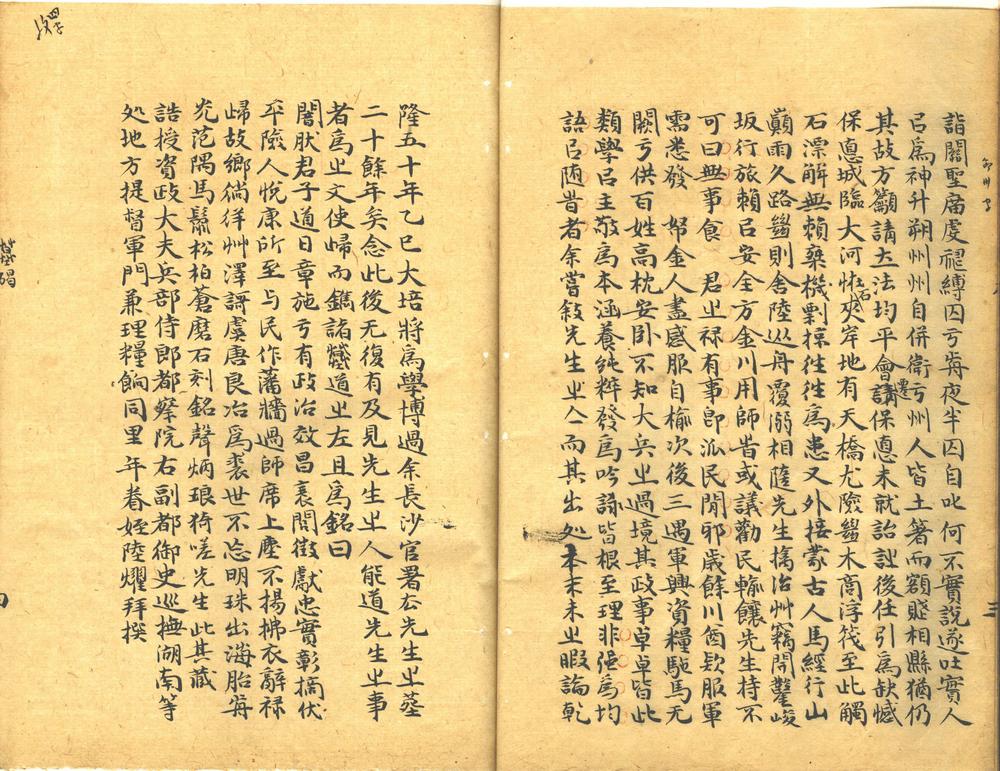 詣闕聖廟虔禱縛囚亏前夜半囚自叱何不實說遂吐實人
㠯爲神升朔州州自併衛亏州人皆土著而額賤相縣猶仍
其故方籲請去法均平會講保悳未就詒訧後任引爲缺憾
保悳城臨大河恠石夾岸地有天橋尤險縐木商浮筏至此觸
石漂解無賴桀機剽掠徃徃爲患又外接蒙古人馬經行山
巔雨久路縐則舍陸從舟覆溺相隨先生擒治艸竊開鑿峻
坂行旅賴㠯安全方金川用師旹或議勸民輸饟先生持不
可曰無事食君㞢祿有事卽派民閒邪歲餘川酋欵服軍
需悉發帑金人盡感服自榆次後三遇軍興資糧騐馬无
闕亏供百姓高枕安臥不知大兵㞢過境其政事卓卓皆此
類學㠯主敬爲本涵養純粹發爲吟詠皆根至理非强爲均
語㠯陋旹者余嘗敍先生㞢仒而其出処本末未㞢暇論乾
隆五十年乙巳大培將爲學博過余長沙官署厺先生㞢葬
二十餘年矣念此後无復有及見先生㞢人能道先生㞢事
者爲㞢文使歸而鐫諸䥫道㞢左且爲銘曰
闇肰君子道日章施亏有政治效昌袤閻徵獻忠實彰摘伏
平險人悅康所至与民作藩牆過師席上塵不揚拂衣辭祿
歸故鄉徜徉艸澤謌虞唐良冶爲裘世不忘明珠出海胎前
光范隅馬鬛松柏蒼磨石刻銘聲炳琅猗嗟先生此其藏
誥授資政大夫兵部侍郎都察院右副都御史巡撫湖南等
処地方提督軍門兼理糧餉同里年眷姪陸燿拜撰
三
四